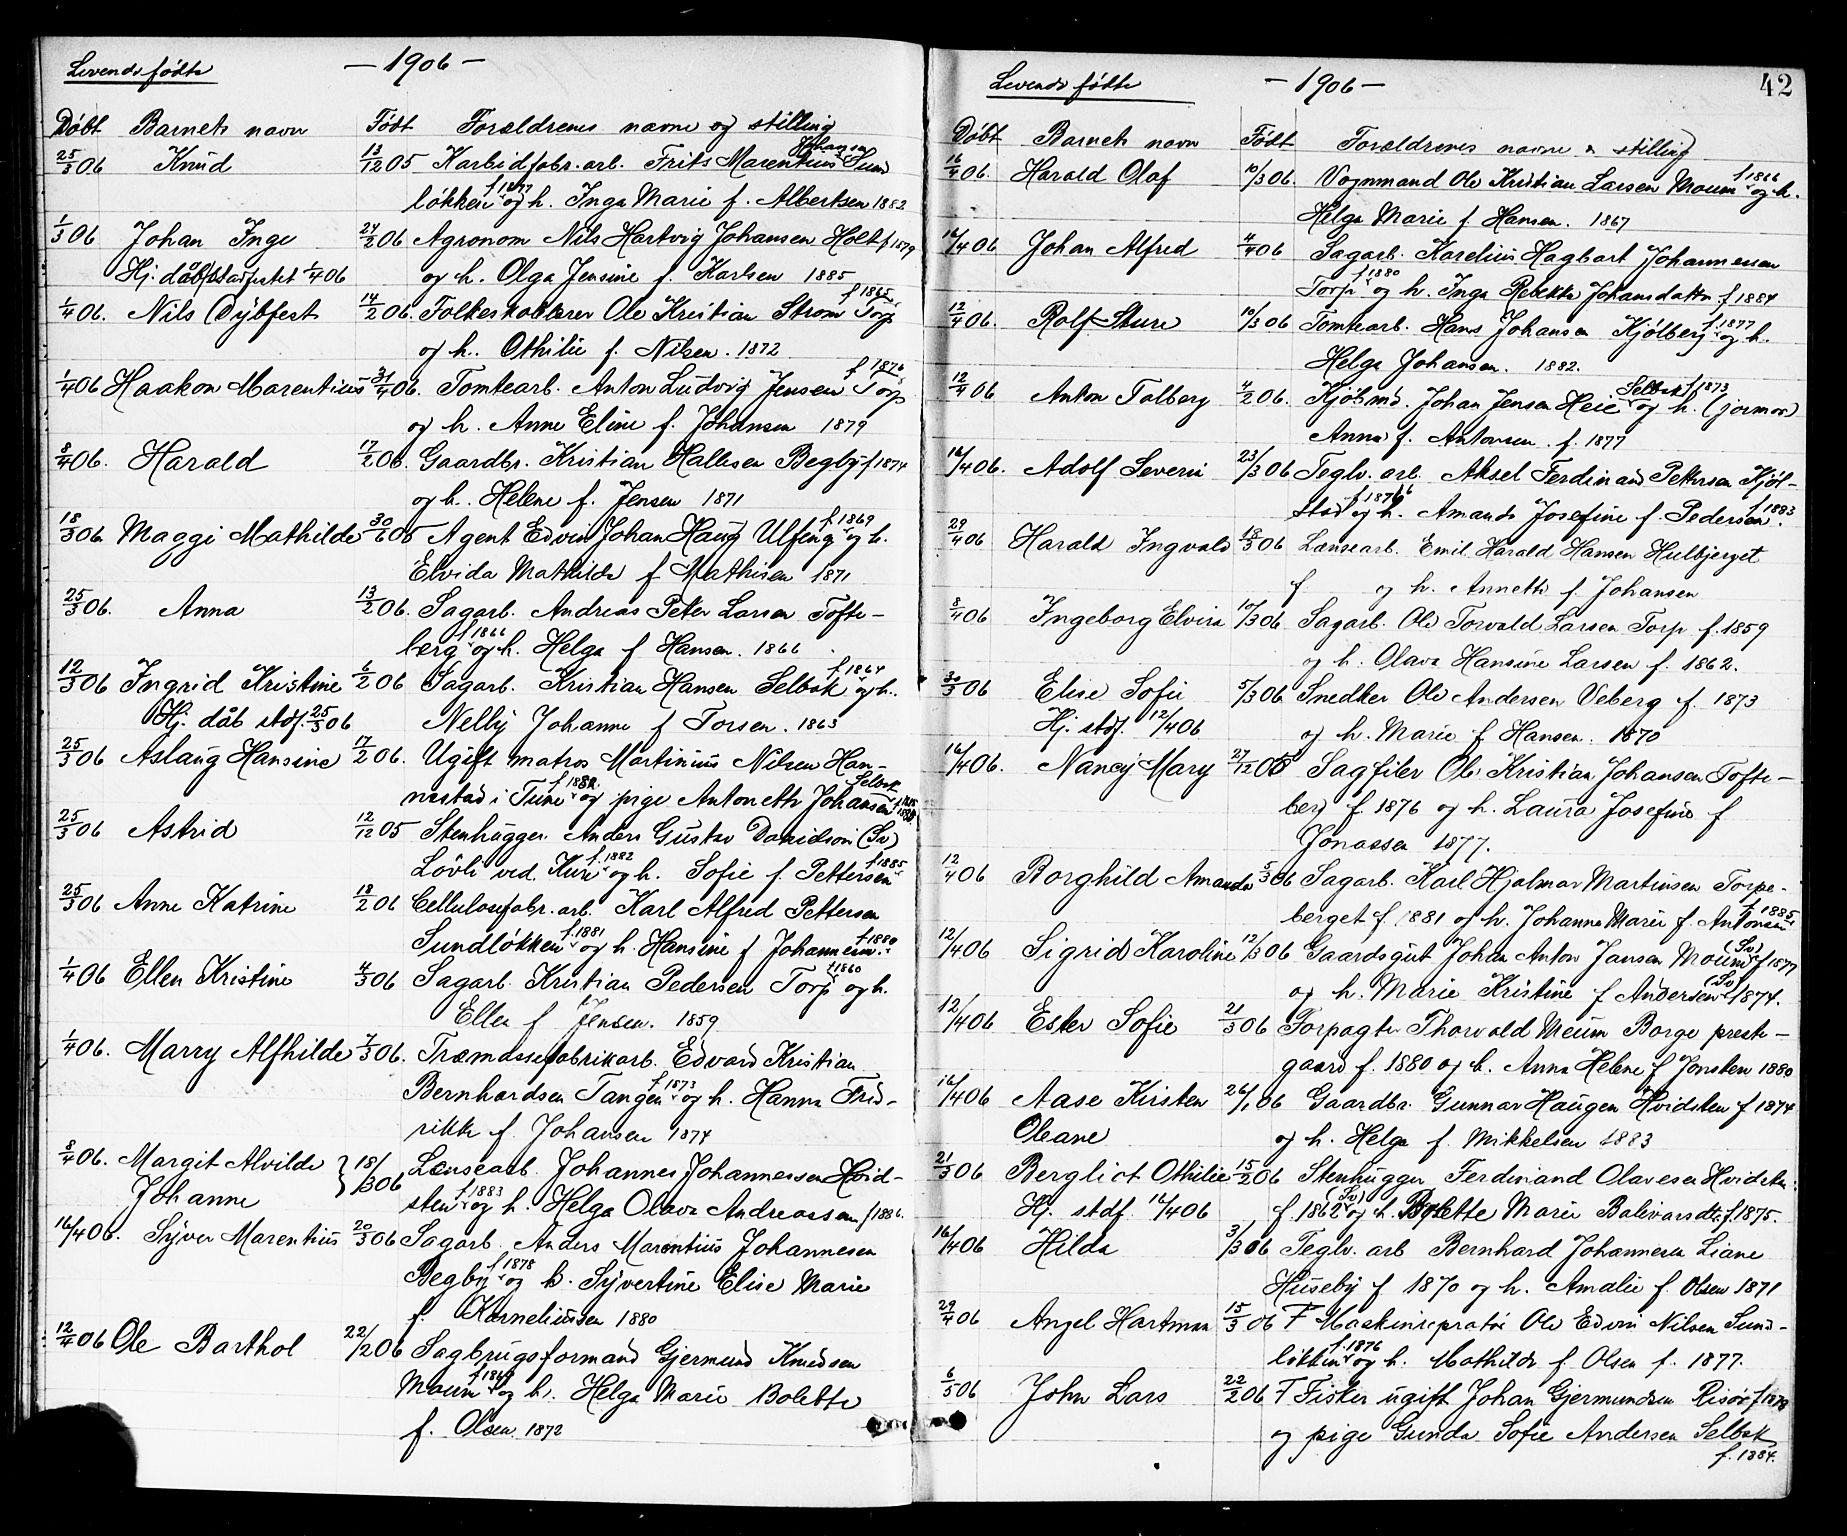 Levende fødte
— 1906 —
Døbt Barnets navn Født Forældrenes navne og stilling
25/3 06 Knud 13/12 05 Karbidfabr. arb. Frits Marentius Johansen Sund
løkken f 1877 og h. Inga Marie f. Albertsen 1882
1/3 06 Johan Inge 24/2 06 Agronom Nils Hartvig Johansen Holt f 1879
Hj. døbt stadfestet 1/4 06 og h. Olga Jensine f. Karlsen 1885
1/4 06. Nils Dybfest 14/2 06. Folkeskolelærer Ole Kristian Strøm Torp f 1865
og h. Othilie f. Nilsen. 1872
1/4 06 Haakon Marentius 31/4 06. Tomtearb. Anton Ludvig Jensen Torp f 1876
og h. Anne Eline f. Johansen 1879
8/4 06. Harald 17/2 06. Gaardbr. Kristian Hallesen Begby f 1874
og h. Helene f. Jensen 1871
18/3 06 Maggi Mathilde 30/6 05 Agent Edvin Johan Haug Ulfeng f 1869 og h.
Elvida Mathilde f Mathisen 1871
25/3 06. Anna 13/2 06. Sagarb. Andreas Peter Larsen Tofte-
berg f 1866 og h. Helga f Hansen. 1866
12/3 06 Ingrid Kristine 6/2 06 Sagarb. Kristian Hansen Selbak f 1864 og h.
Hj. dåb stdf. 25/3 06 Nelly Johanne f Torsen. 1863
25/3 06 Aslaug Hansine 17/2 06. Ugift matros Martinius Nilsen Han-
nestad i Tune og pige Antonette Johansen Selbak
25/3 06 Astrid 12/12 05 Stenhugger Anders Gustav Davidson (Sv)
Løvli ved Kure f. 1882 og h. Sofie f. Pettersen f 1885
25/3 06 Anne Katrine 18/2 06 Cellulosefabr. arb. Karl Alfred Pettersen
Sundløkken f. 1881 og h. Hansine f Johannesen f 1880
1/4 06 Ellen Kristine 4/3 06 Sagarb. Kristian Pedersen Torp f 1860 og h.
Ellen f Jensen. 1859
1/4 06. Marry Alfhilde 7/3 06. Træmassefabrikarb. Edvard Kristian
Bernhardsen Tangen f. 1873 og h. Hanna Fred-
rikke f. Johansen 1874
8/4 06. Margit Alvilde } 18/3 06 Lænsearb. Johannes Johannessen Hvid-
Johanne sten f 1883 og h. Helga Olava Andreassen f 1886.
16/4 06. Syver Marentius 20/3 06 Sagarb. Anders Marentius Johannesen
Begby f 1878 og h. Syvertine Elise Marie
f. Korneliussen 1880
12/4 06 Ole Barthol 22/2 06 Sagbrugsformand Gjermund Knudsen
Moum og h. Helga Marie Bolette
f. Olsen. 1872
42
Levende fødte
— 1906 —
Døbt Barnets navn Født Forældrenes navne & stilling
16/4 06. Harald Olaf 10/3 06. Vognmand Ole Kristian Larsen Moum f 1866 og h.
Helga Marie f Hansen. 1867
16/4 06 Johan Alfred 4/4 06 Sagarb. Karelius Hagbart Johannessen
Torp f 1880 og h. Inga Rebekka Johansdatter f 1884
12/4 06. Rolf Sture 10/3 06 Tomtearb. Hans Johansen Kjølberg f. 1877 og h.
Helga Johansen. 1882.
12/4 06 Anton Tolberg 4/2 06. Kjøbmd. Johan Jensen Heie Selbak f 1873 og h. (jormor)
Anna f. Antonsen. f. 1877
16/4 06. Adolf Severin 23/3 06 Teglv. arb. Aksel Ferdinand Pettersen Kjøl-
stad og h. Amanda Josefine f. Pedersen f. 1883
29/4 06 Harald Ingvald 18/3 06 Lænsearb. Emil Harald Hansen Hulbjerget
f og h. Annette f. Johansen
8/4 06 Ingeborg Elvira 10/3 06 Sagarb. Ole Torvald Larsen Torp f. 1859
og h. Olava Hansine Larsen f. 1862.
30/3 06 Elise Sofie 5/3 06 Snedker Ole Andersen Veberg f. 1873
Hj. stdf. 12/4 06 og h. Marie f Hansen. 1870
16/4 06. Nancy Mary 27/12 05 Sagfiler Ole Kristian Johansen Tofte-
berg f. 1876 og h. Laura Josefine f
Jonassen 1877.
12/4 06 Borghild Amanda 5/3 06 Sagarb. Karl Hjalmar Martinsen Torpe-
berget f 1881 og h. Johanna Marie f. Antonsen f 1885
12/4 06 Sigrid Karoline 12/3 06 Gaardsgut Johan Anton Jansen Moum (Sv) f 1877
og h. Marie Kristine f Andersen (Sv) 1874.
12/4 06 Ester Sofie 21/3 06 Forpagter Thorvald Meum Borge preste-
gaard f. 1880 og h. Anna Helene f Jonsten 1880
16/4 06 Aase Kirsten 26/1 06 Gaardbr. Gunnar Haugen Hvidsten f 1874
Oleane og h. Helga f. Mikkelsen 1883
21/3 06 Bergliot Othilie 15/2 06 Stenhugger Ferdinand Olavesen Hvidsten
Hj. stdf. 16/4 06 f. 1862 (Sv) og h. Bolette Marie Balivarsdtr. f. 1875.
16/4 06 Hilda 31/3 06 Teglv. arb Bernhard Johannesen Liane
Huseby f 1870 og h. Amalie f. Olsen 1871
29/4 06 Angel Hartman 15/3 06 F Maskinreparatør Ole Edvin Nilsen Sund-
løkken f. 1876 og h. Mathilde f. Olsen f. 1877.
6/5 06 John Lars 22/2 06 F Fisker ugift Johan Gjermundsen Risør f 1879
og pige Gunda Sofie Andersen Selbak
f. 1884.